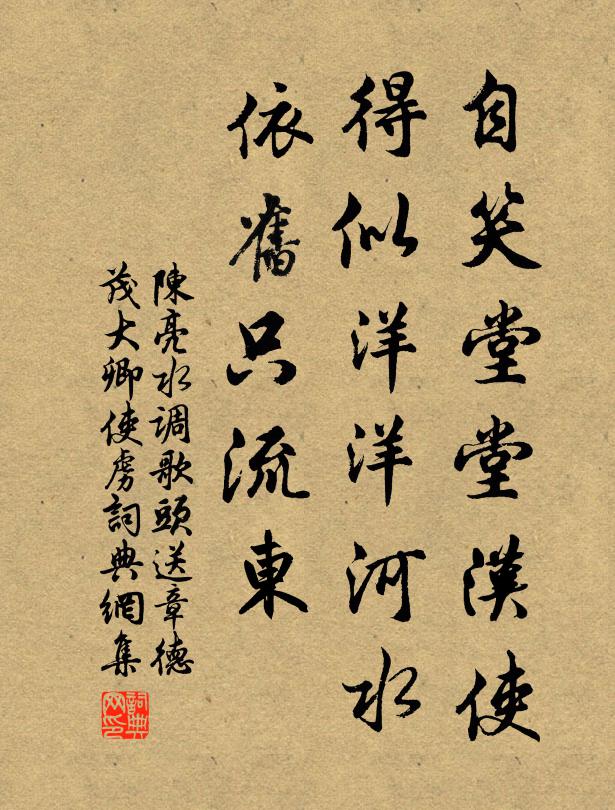 自笑堂堂漢使
得似洋洋河水
依舊只流東
陳亮水调歌頭送章德
茂大卿使虜詞典網集
詞典网印